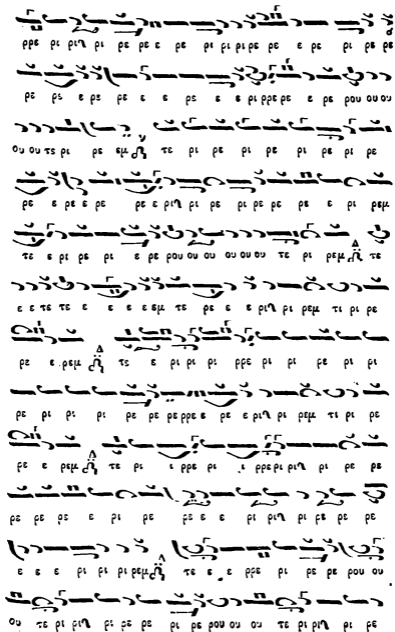 ρρε ρι ριν ρι ρε ρε ε ρε ρι ρι ρι ρε ρε ε ρε ρι ρε ρε
ρε ρε ε ρε ρε ε ε ρε ε ε ρι ρρε ρε ε ρε ρου ου ου
ου ου τε ρι ρε εμ τε ρι ρε ρι ρε ρι ρε ρι ρε
ρε ε ρε ε ρε ρε ε ριν ρι ρε ρι ρε ρε ρε ε ρι ρεμ
τε ε ρι ρε ε ρε ρου ου ου ου ου ου τε ρι ρεμ τε
ε ε τε τε ε ε ε εμ τε ρε ε ε ριν ρι ρεμ τι ρι ρε
ρε ε ρεμ τε ε ρι ρι ρι ρρε ρι ρι ρε ρι ρι
ρε ρι ρε ρι ρε ρε ρε ρρε ε ρε ε ριν ρι ρεμ τι ρι ρε
ρε ε ρεμ τε ρι ε ρρε ρι ε ρρε ρι ριν ρι ρε ρε
ρε ρε ρε ε ρι ρε ρε ε ε ρι ριν ρι ρε ρε ρε
ε ε ε ρι ρι ρι ρεμ τε ε ε ρρε ρι ρε ρε ρου ου
ου τε ρι ριν ρι ρε ρε ρι ρε ρου ου ου τε ρι ριν ρι ρε ρε